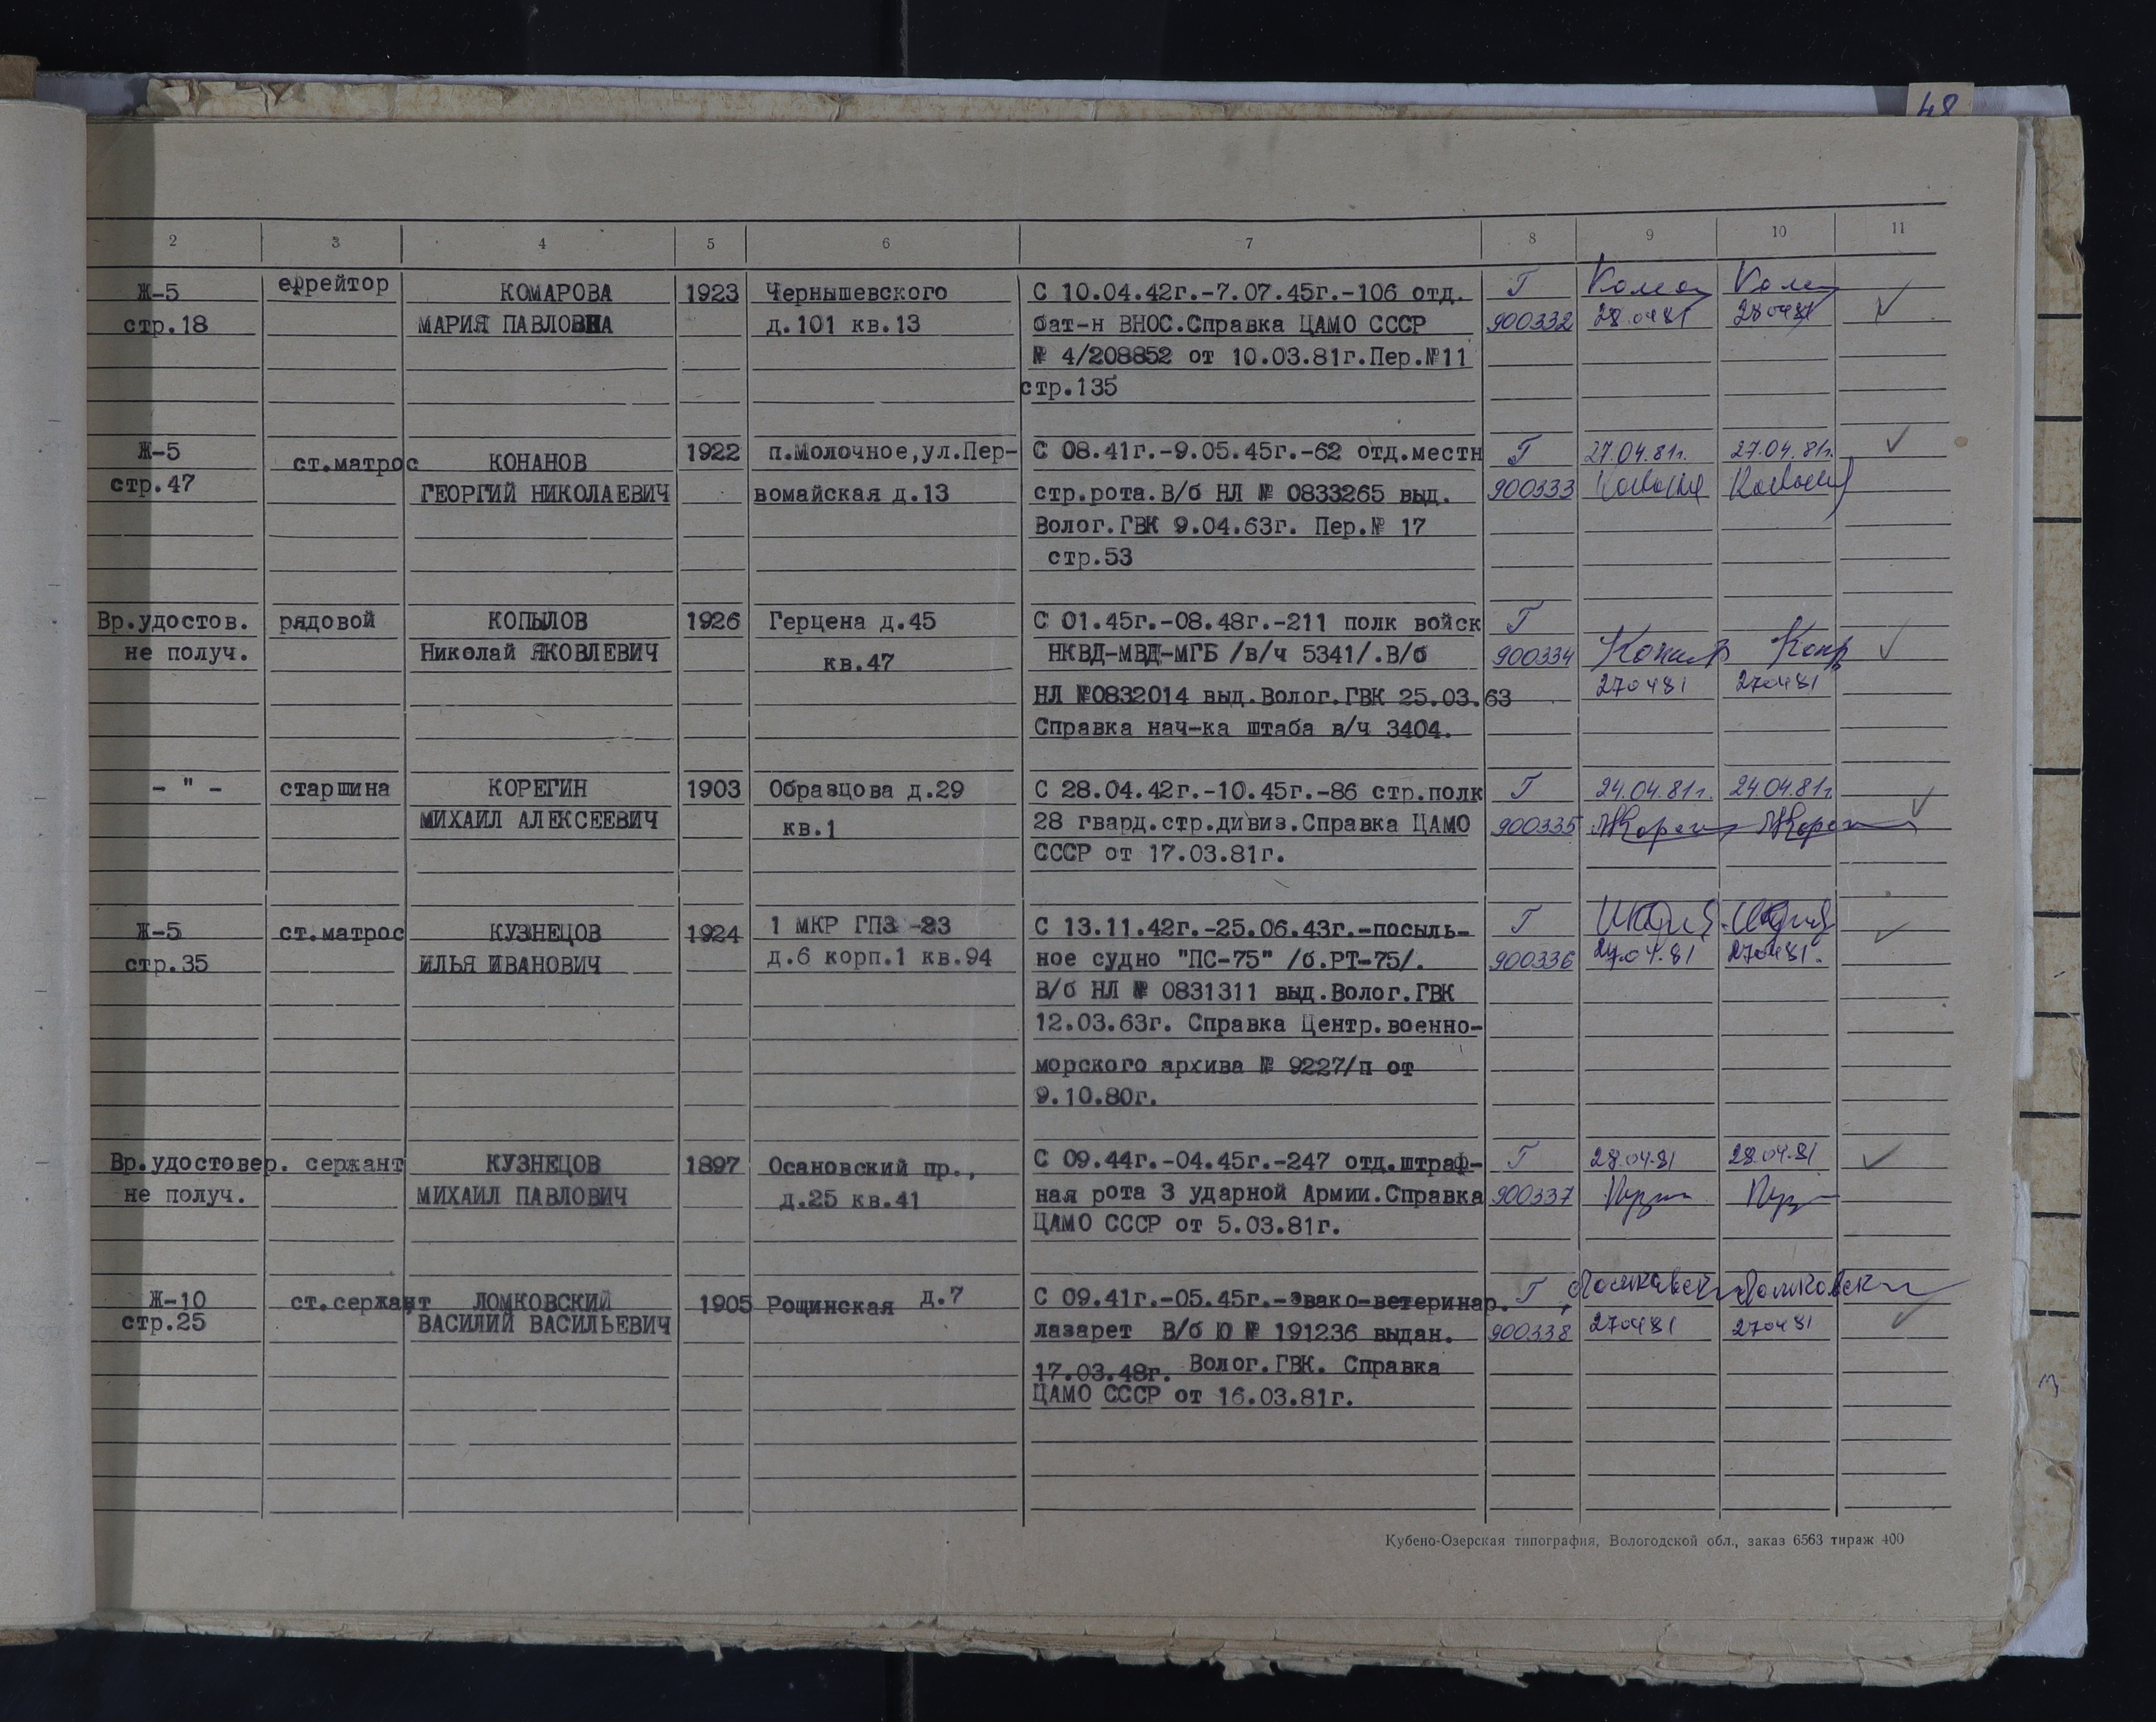 48
2 3 4 5 6 7 8 9 10 11
Ж-5 ефрейтор КОМАРОВА 1923 Чернышевского С 10.04.42г.-7.07.45г.-106 отд. Г
стр.18 МАРИЯ ПАВЛОВНА д.101 кв.13 бат-н ВНОС.Справка ЦАМО СССР 900332 28.0481 280481
№ 4/208852 от 10.03.81г.Пер.№11
стр.135
Ж-5 ст.матрос КОНАНОВ 1922 п.Молочное,ул.Пер- С 08.41г.-9.05.45г.-62 отд.местн Г 27.04.81г. 27.04.81г.
стр.47 ГЕОРГИЙ НИКОЛАЕВИЧ вомайская д.13 стр.рота.В/б НЛ № 0833265 выд. 900333
Волог.ГВК 9.04.63г. Пер.№ 17
стр.53
Вр.удостов. рядовой КОПЫЛОВ 1926 Герцена д.45 С 01.45г.-08.48г.-211 полк войск Г
не получ. Николай ЯКОВЛЕВИЧ кв.47 НКВД-МВД-МГБ /в/ч 5341/.В/б 900334
НЛ №0832014 выд.Волог.ГВК 25.03.63 270481 270481
Справка нач-ка штаба в/ч 3404.
- " - старшина КОРЕГИН 1903 Образцова д.29 С 28.04.42г.-10.45г.-86 стр.полк Г 24.04.81г. 24.04.81г.
МИХАИЛ АЛЕКСЕЕВИЧ кв.1 28 гвард.стр.дивиз.Справка ЦАМО 900335
СССР от 17.03.81г.
Ж-5 ст.матрос КУЗНЕЦОВ 1924 1 МКР ГПЗ -23 С 13.11.42г.-25.06.43г.-посыль- Г
стр.35 ИЛЬЯ ИВАНОВИЧ д.6 корп.1 кв.94 ное судно "ПС-75" /б.РТ-75/. 900336 27.04.81 270481.
В/б НЛ № 0831311 выд.Волог.ГВК
12.03.63г. Справка Центр.военно-
морского архива № 9227/п от
9.10.80г.
Вр.удостовер. сержант КУЗНЕЦОВ 1897 Осановский пр., С 09.44г.-04.45г.-247 отд.штраф- Г 28.04.81 28.04.81
не получ. МИХАИЛ ПАВЛОВИЧ д.25 кв.41 ная рота 3 ударной Армии.Справка 900337
ЦАМО СССР от 5.03.81г.
Ж-10 ст.сержант ЛОМКОВСКИЙ 1905 Рощинская д.7 С 09.41г.-05.45г.-эвако-ветеринар. Г
стр.25 ВАСИЛИЙ ВАСИЛЬЕВИЧ лазарет В/б Ю № 191236 выдан. 900338 270481 270481
17.03.48г. Волог.ГВК. Справка
ЦАМО СССР от 16.03.81г.
Кубено-Озерская типография, Вологодской обл., заказ 6563 тираж 400